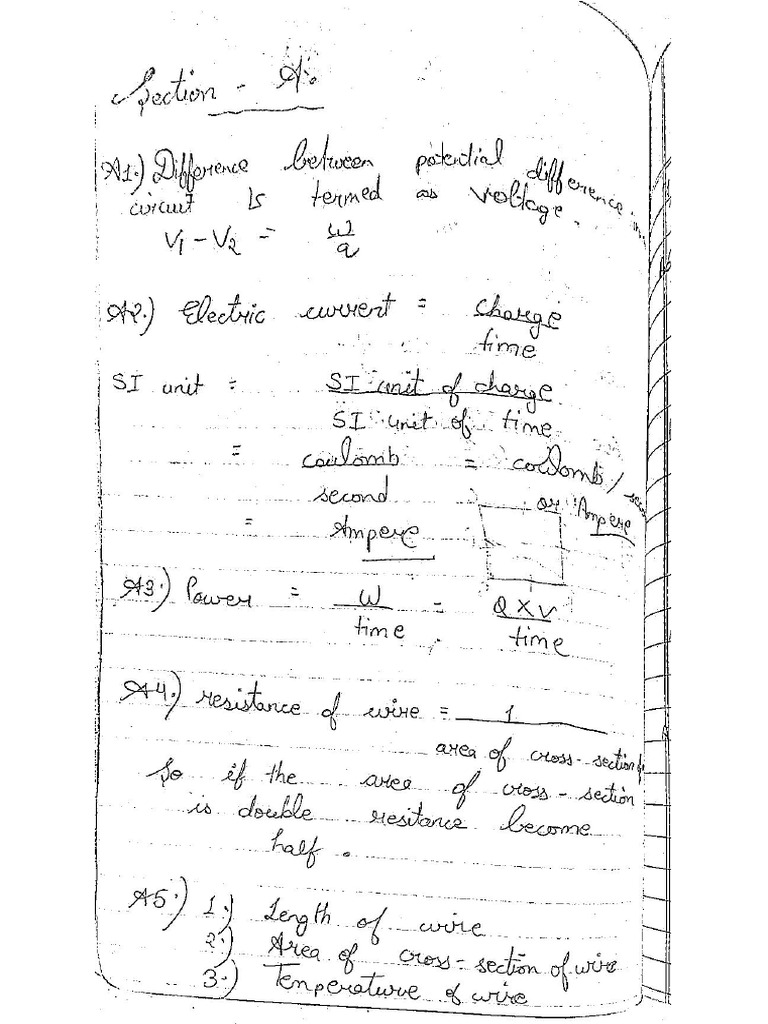 Section - A:
A1.) Difference between potential difference in
circuit is termed as voltage.
V1 - V2 = W
q
A2.) Electric current = charge
time
SI unit = SI unit of charge
SI unit of time
= coulomb = coulomb /
second or Ampere
= Ampere
A3.) Power = W = Q X V
time time
A4.) resistance of wire = 1
area of cross-section
So if the area of cross-section
is double resitance become
half.
A5.) 1.) Length of wire
2.) Area of cross-section of wire
3.) Temperature of wire